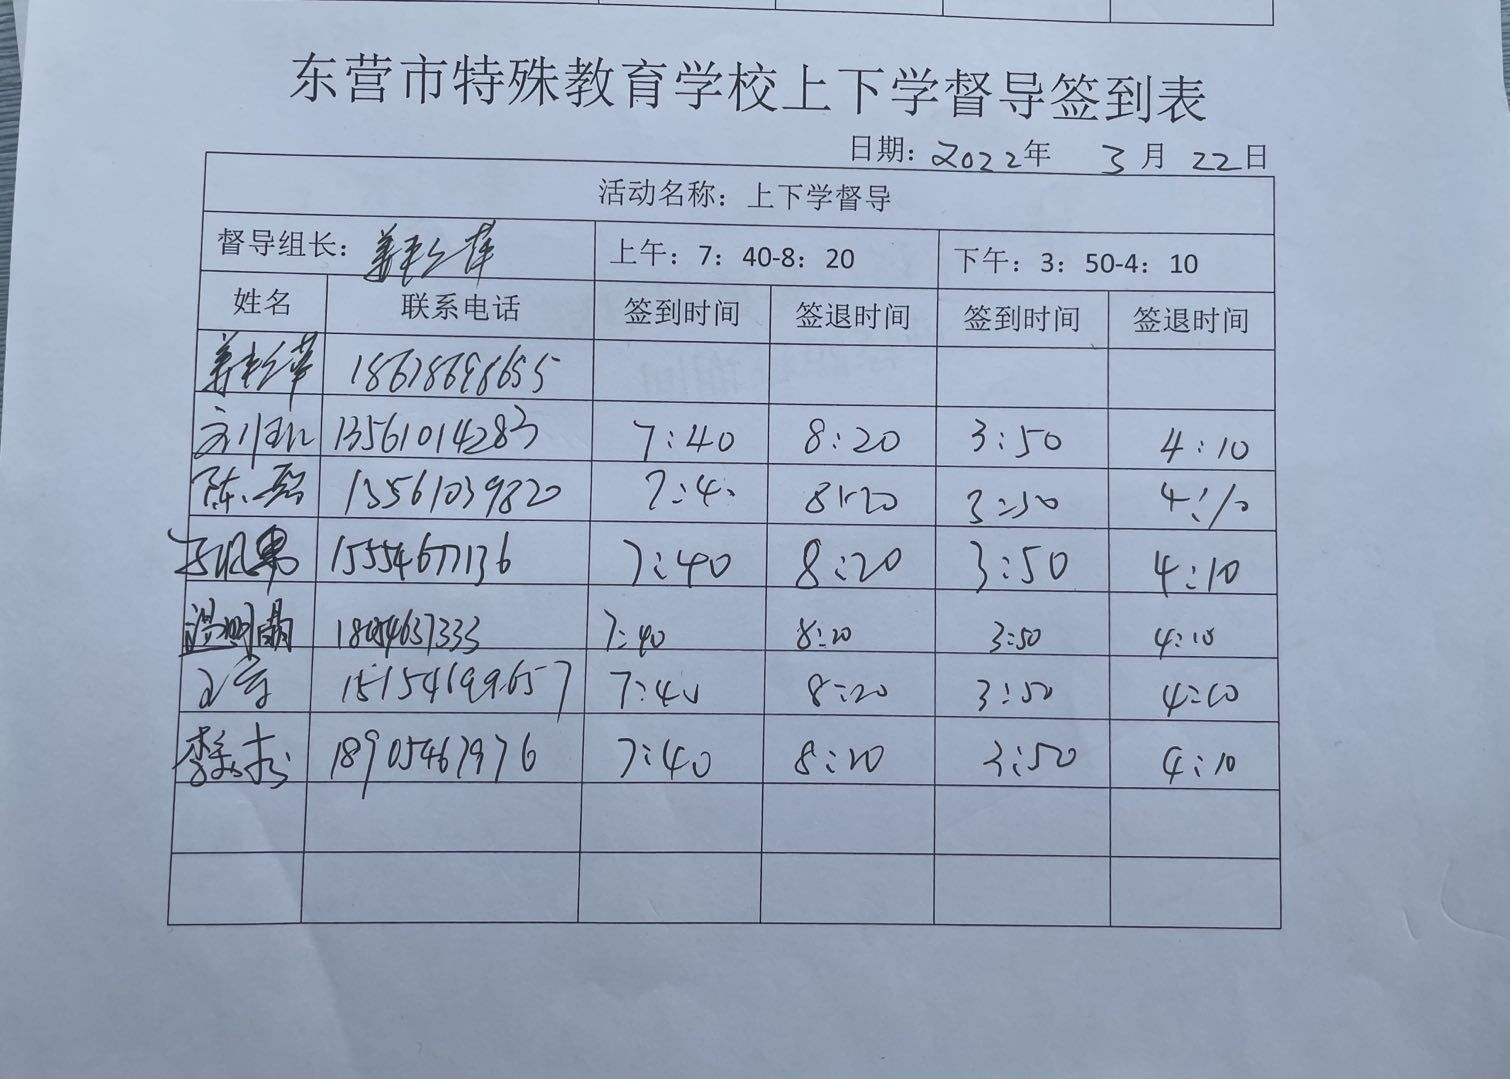 东营市特殊教育学校上下学督导签到表
日期：2022年 3月 22日
活动名称：上下学督导
督导组长： 上午：7：40-8：20 下午：3：50-4：10
姓名 联系电话 签到时间 签退时间 签到时间 签退时间
13561014283 7:40 8:20 3:50 4:10
陈 13561039820 7:40 8:20 3:50 4:10
15554677136 7:40 8:20 3:50 4:10
温明 7:40 8:20 3:50 4:10
15154699657 7:40 8:20 3:50 4:10
李 18905467976 7:40 8:20 3:50 4:10